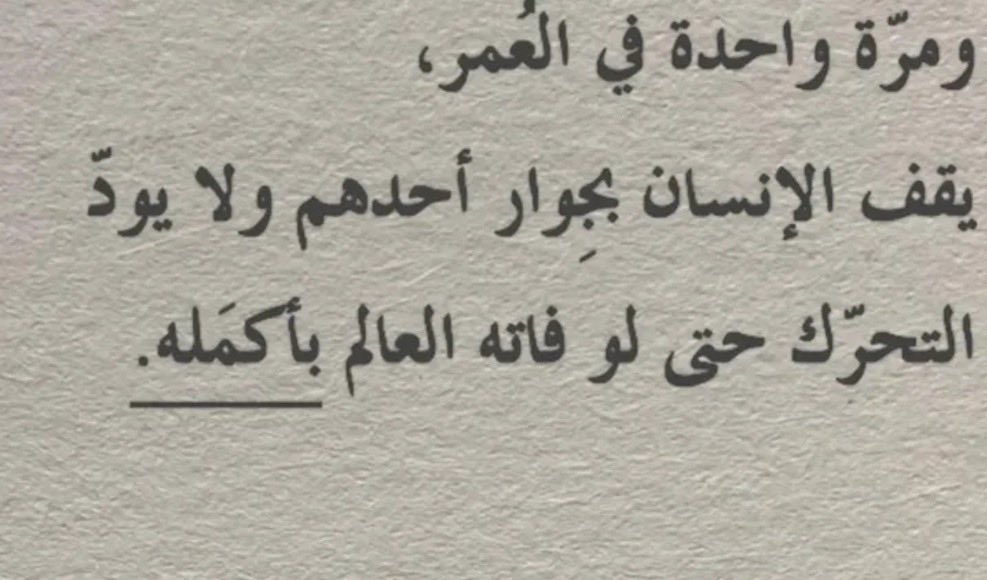 ومرّة واحدة في العُمر،
يقف الإنسان بجِوار أحدهم ولا يودّ
التحرّك حتى لو فاته العالم بأكمَله.